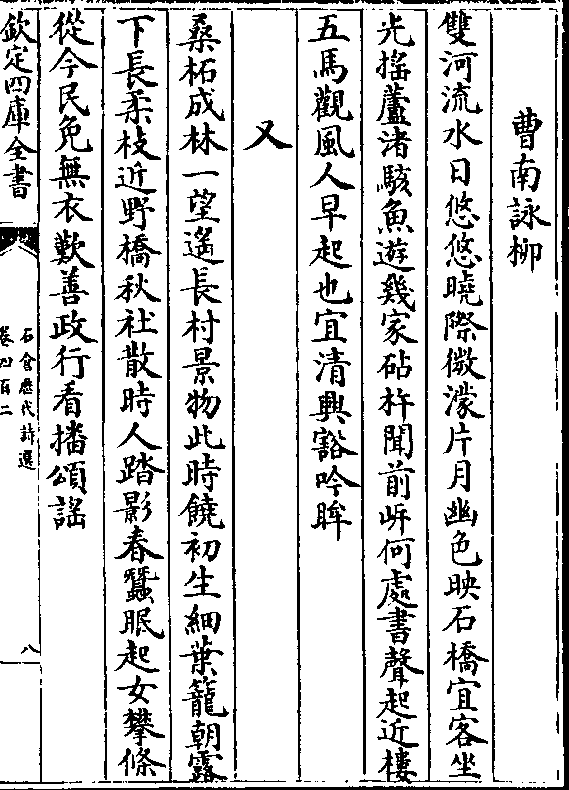 曹南詠柳
雙河流水日悠悠曉際微濛片月幽色映石橋宜客坐
光搖蘆渚駭魚遊幾家砧杵聞前岍何處書聲起近樓
五馬觀風人早起也宜清興豁吟眸
又
桑柘成林一望遙長村景物此時饒初生細葉籠朝露
下長柔枝近野橋秋社散時人踏影春蠶眠起女攀條
從今民免無衣歎善政行看播頌謠
欽定四庫全書
石倉歷代詩選
卷四百二
八